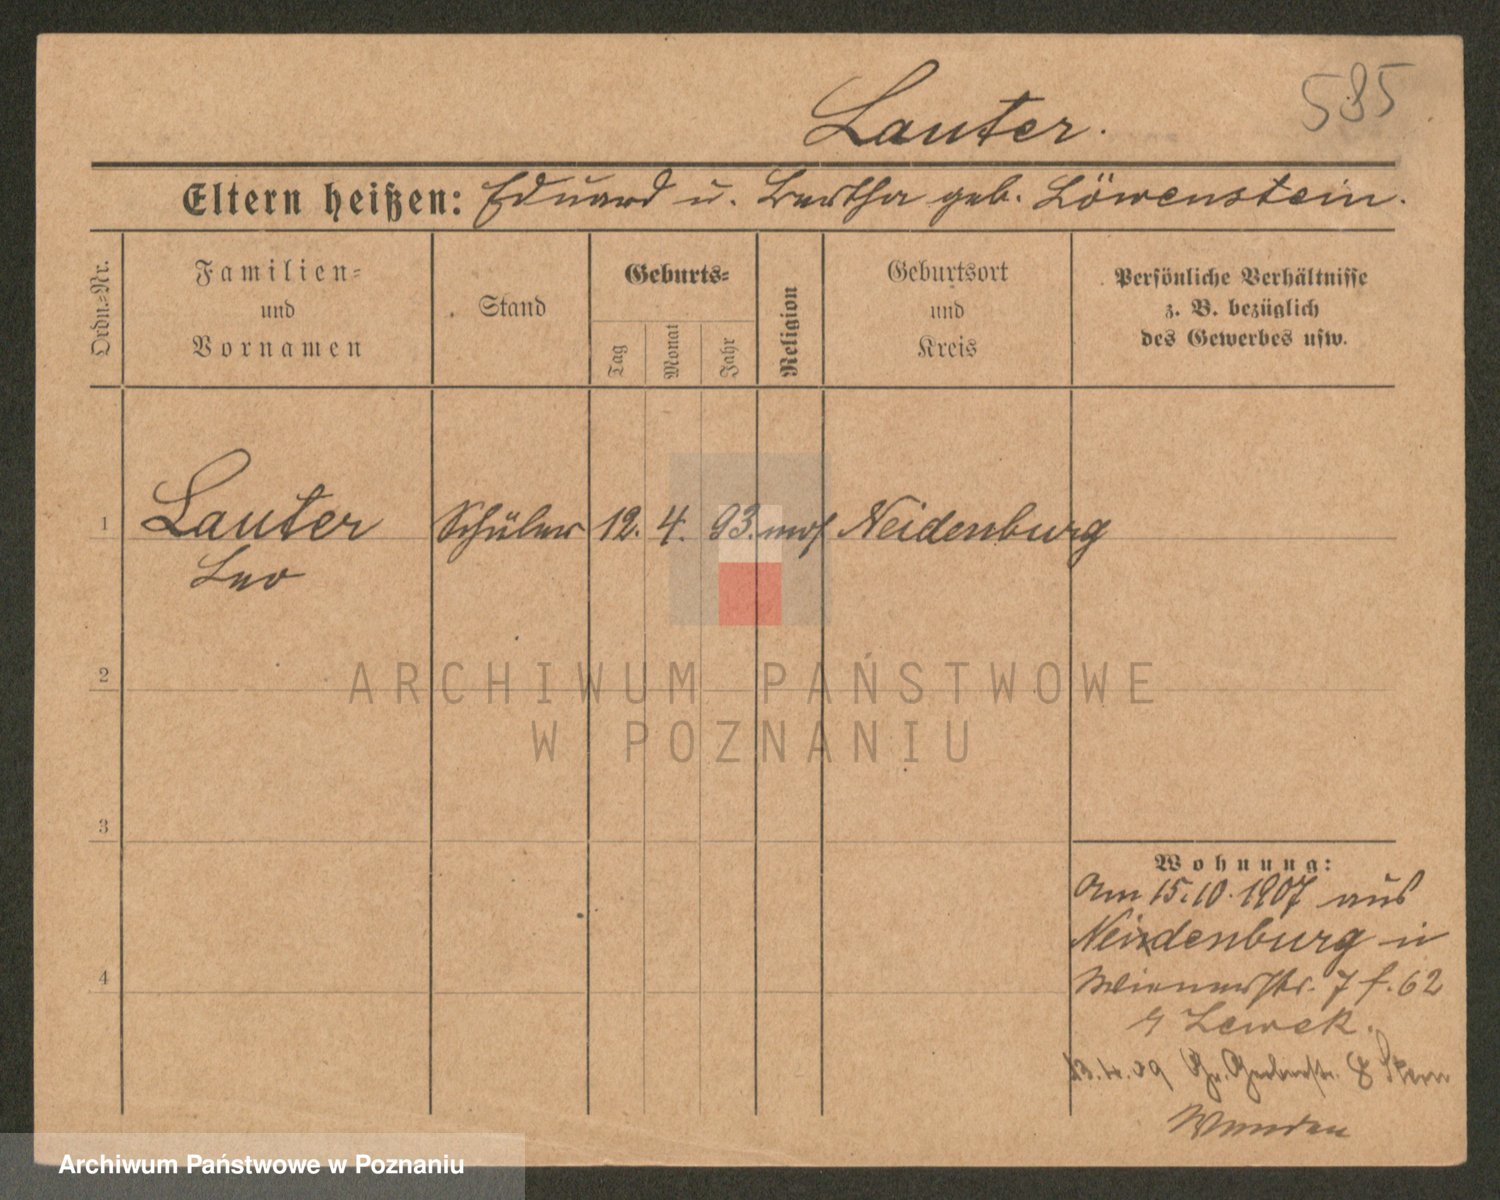 585
Lauter.
Eltern heißen: Eduard u. Bertha geb. Löwenstein.
Ordn.-Nr.
Familien-
und
Vornamen
Stand
Geburts-
Tag
Monat
Jahr
Religion
Geburtsort
und
Kreis
Persönliche Verhältnisse
z. B. bezüglich
des Gewerbes usw.
1 Lauter Schüler 12. 4. 93. mos Neidenburg
Leo
2
3
4
ARCHIWUM PAŃSTWOWE
W POZNANIU
Wohnung:
Am 15.10.1907 aus
Neidenburg in
Wienerstr. 7 f. 62
Lewek.
13.4.09 Gr. Gerberstr. 8 Stern
Archiwum Państwowe w Poznaniu